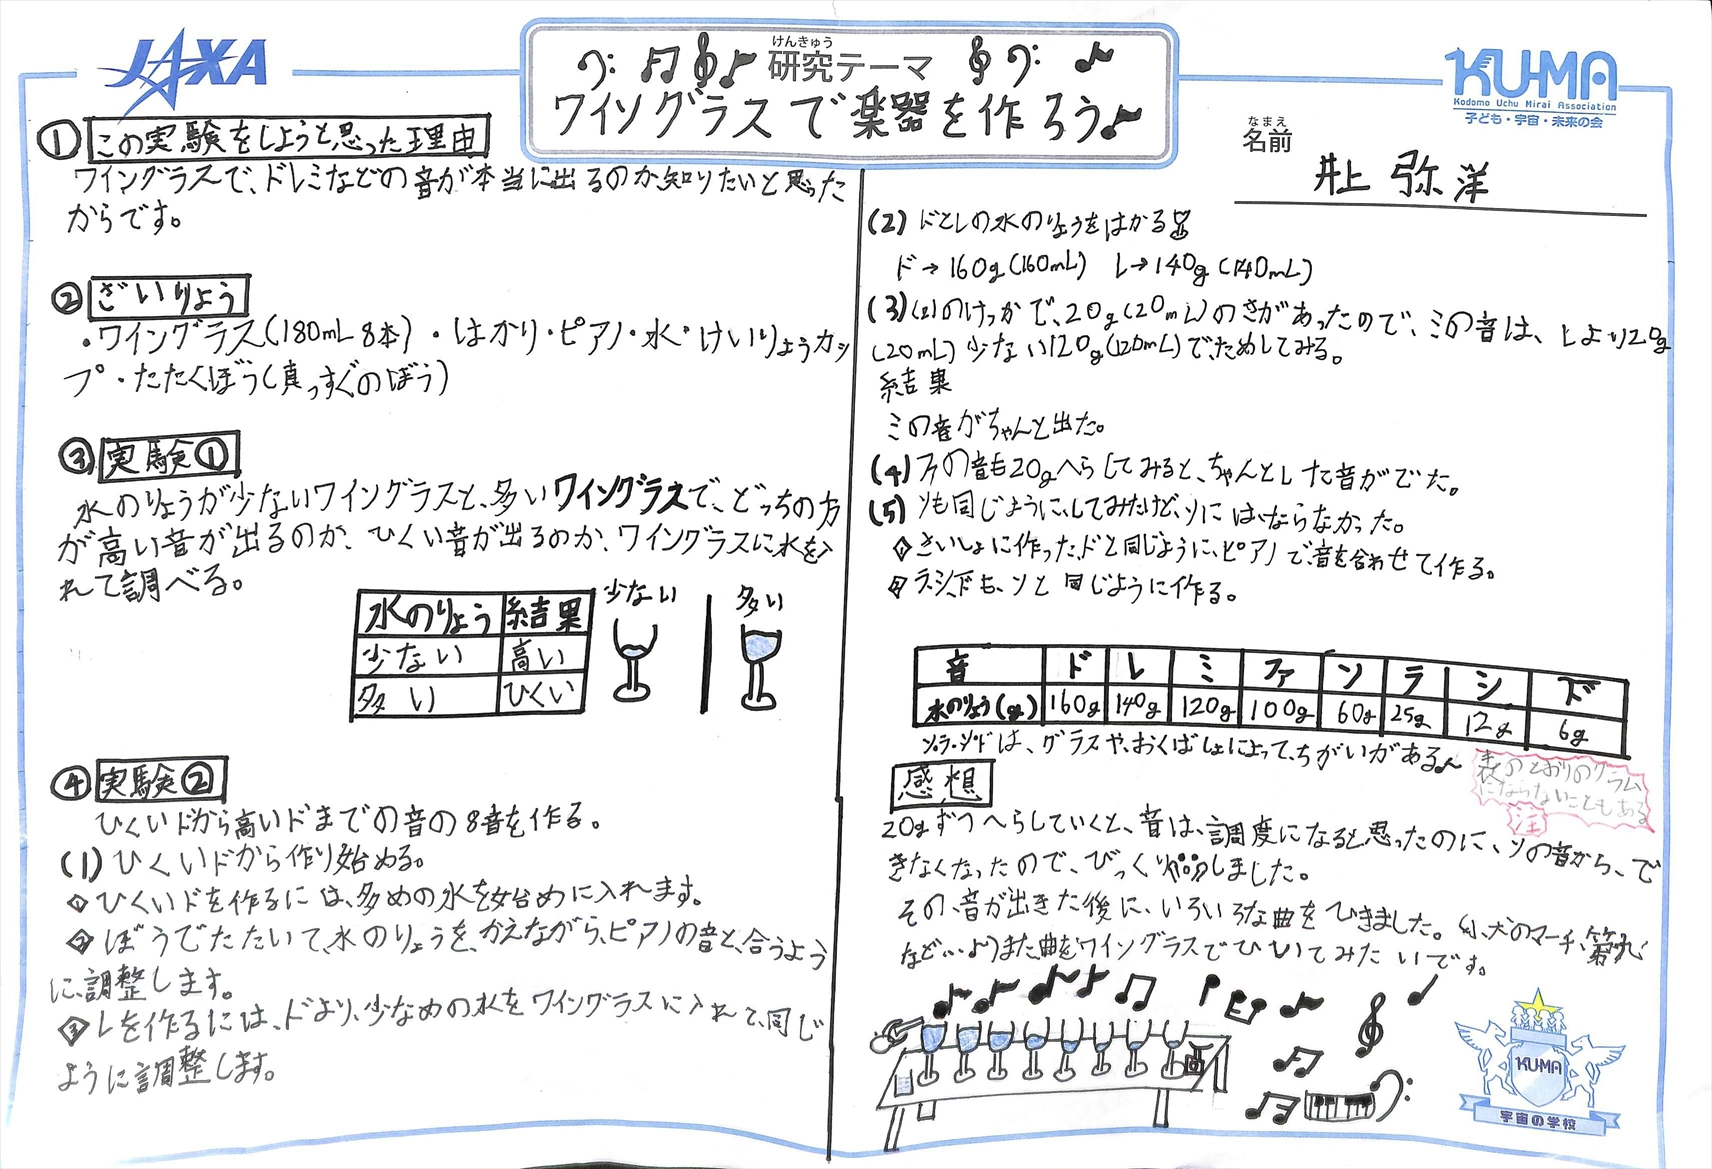 JAXA
けんきゅう
研究テーマ
ワイングラスで楽器を作ろう
KU-MA
Kodomo Uchu Mirai Association
子ども・宇宙・未来の会
なまえ
名前
井上 弥洋
① この実験をしようと思った理由
ワイングラスで、ドレミなどの音が本当に出るのか知りたいと思った
からです。
② ざいりょう
・ワイングラス(180mL 8本)・はかり・ピアノ・水・けいりょうカッ
プ・たたくぼう(真っすぐのぼう)
③ 実験①
水のりょうが少ないワイングラスと、多いワイングラスで、どっちの方
が高い音が出るのか、ひくい音が出るのか、ワイングラスに水を入
れて調べる。
水のりょう 結果
少ない 高い
多い ひくい
少ない 多い
④ 実験②
ひくいドから高いドまでの音の8音を作る。
(1) ひくいドから作り始める。
1 ひくいドを作るには、多めの水を始めに入れます。
2 ぼうでたたいて、水のりょうを、かえながら、ピアノの音と、合うよう
に、調整します。
3 レを作るには、ドより、少なめの水をワイングラスに入れて、同じ
ように調整します。
(2) ドとレの水のりょうをはかる
ド→160g(160mL) レ→140g(140mL)
(3) (2)のけっかで、20g(20mL)のさがあったので、ミの音は、レより20g
(20mL)少ない120g(120mL)でためしてみる。
結果
ミの音がちゃんと出た。
(4) ファの音も20gへらしてみると、ちゃんとした音がでた。
(5) ソも同じように、してみたけど、ソには、ならなかった。
1 さいしょに作った、ドと同じように、ピアノで、音を合わせて作る。
2 ラ、シ、ドも、ソと同じように作る。
音 ド レ ミ ファ ソ ラ シ ド
水のりょう(g) 160g 140g 120g 100g 60g 25g 12g 6g
ソ・ラ・シ・ドは、グラスや、おくばしょによって、ちがいがある
表のとおりのグラム
にならないこともある
注
感想
20gずつへらしていくと、音は、調度になると思ったのに、ソの音から、で
きなくなったので、びっくりしました。
その、音が出きた後に、いろいろな曲をひきました。(小犬のマーチ、第九
など…)また曲をワイングラスでひいてみたいです。
KUMA
宇宙の学校